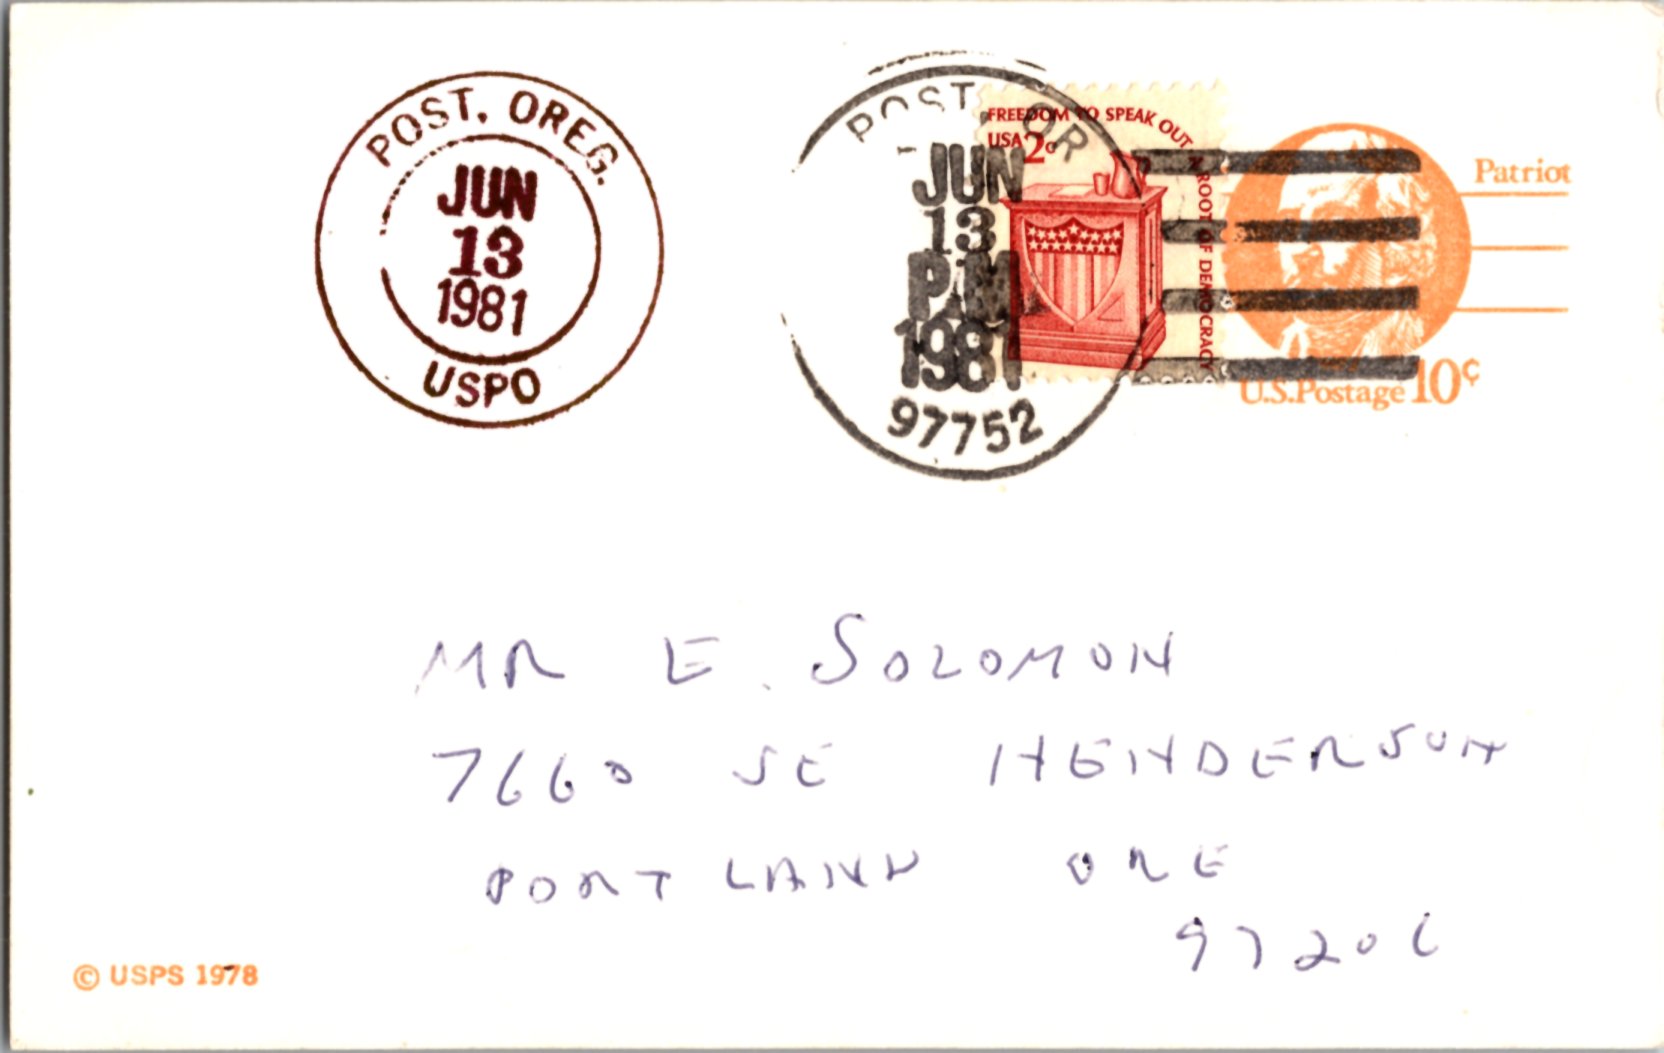 POST, OREG.
JUN
13
1981
USPO
POST, OR
JUN
13
PM
1981
97752
FREEDOM TO SPEAK OUT
A ROOT OF DEMOCRACY
USA 2c
Patriot
U.S.Postage 10¢
MR E. SOLOMON
7660 SE HENDERSON
PORTLAND ORE
97206
© USPS 1978